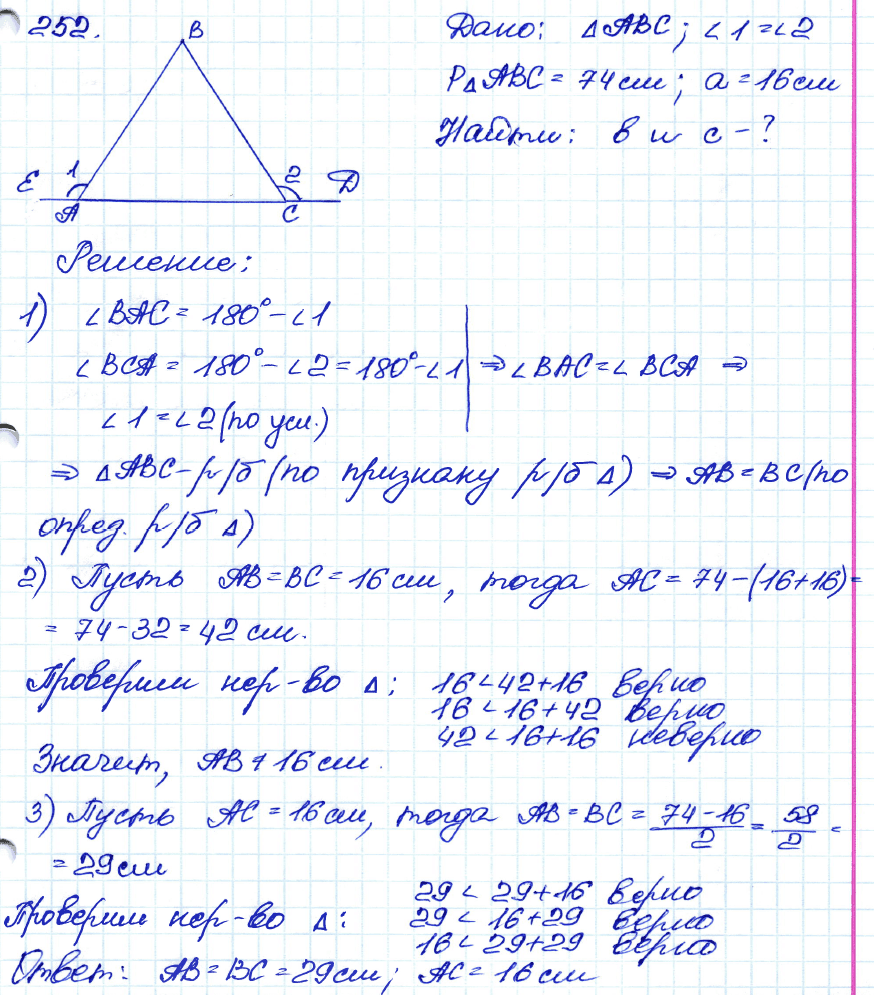 252.
B
Дано: △ABC; ∠1=∠2
P△ABC = 74 см; a = 16 см
Найти: в и с - ?
E 1 2 Д
A C
Решение:
1) ∠BAC = 180° - ∠1
∠BCA = 180° - ∠2 = 180° - ∠1 ⇒ ∠BAC = ∠BCA ⇒
∠1 = ∠2 (по усл.)
⇒ △ABC - р/б (по признаку р/б △) ⇒ AB = BC (по
опред. р/б △)
2) Пусть AB = BC = 16 см, тогда AC = 74 - (16+16) =
= 74 - 32 = 42 см.
Проверим нер-во △: 16 < 42 + 16 верно
16 < 16 + 42 верно
42 < 16 + 16 неверно
Значит, AB ≠ 16 см.
3) Пусть AC = 16 см, тогда AB = BC = (74 - 16)/2 = 58/2 =
= 29 см
29 < 29 + 16 верно
Проверим нер-во △: 29 < 16 + 29 верно
16 < 29 + 29 верно
Ответ: AB = BC = 29 см; AC = 16 см